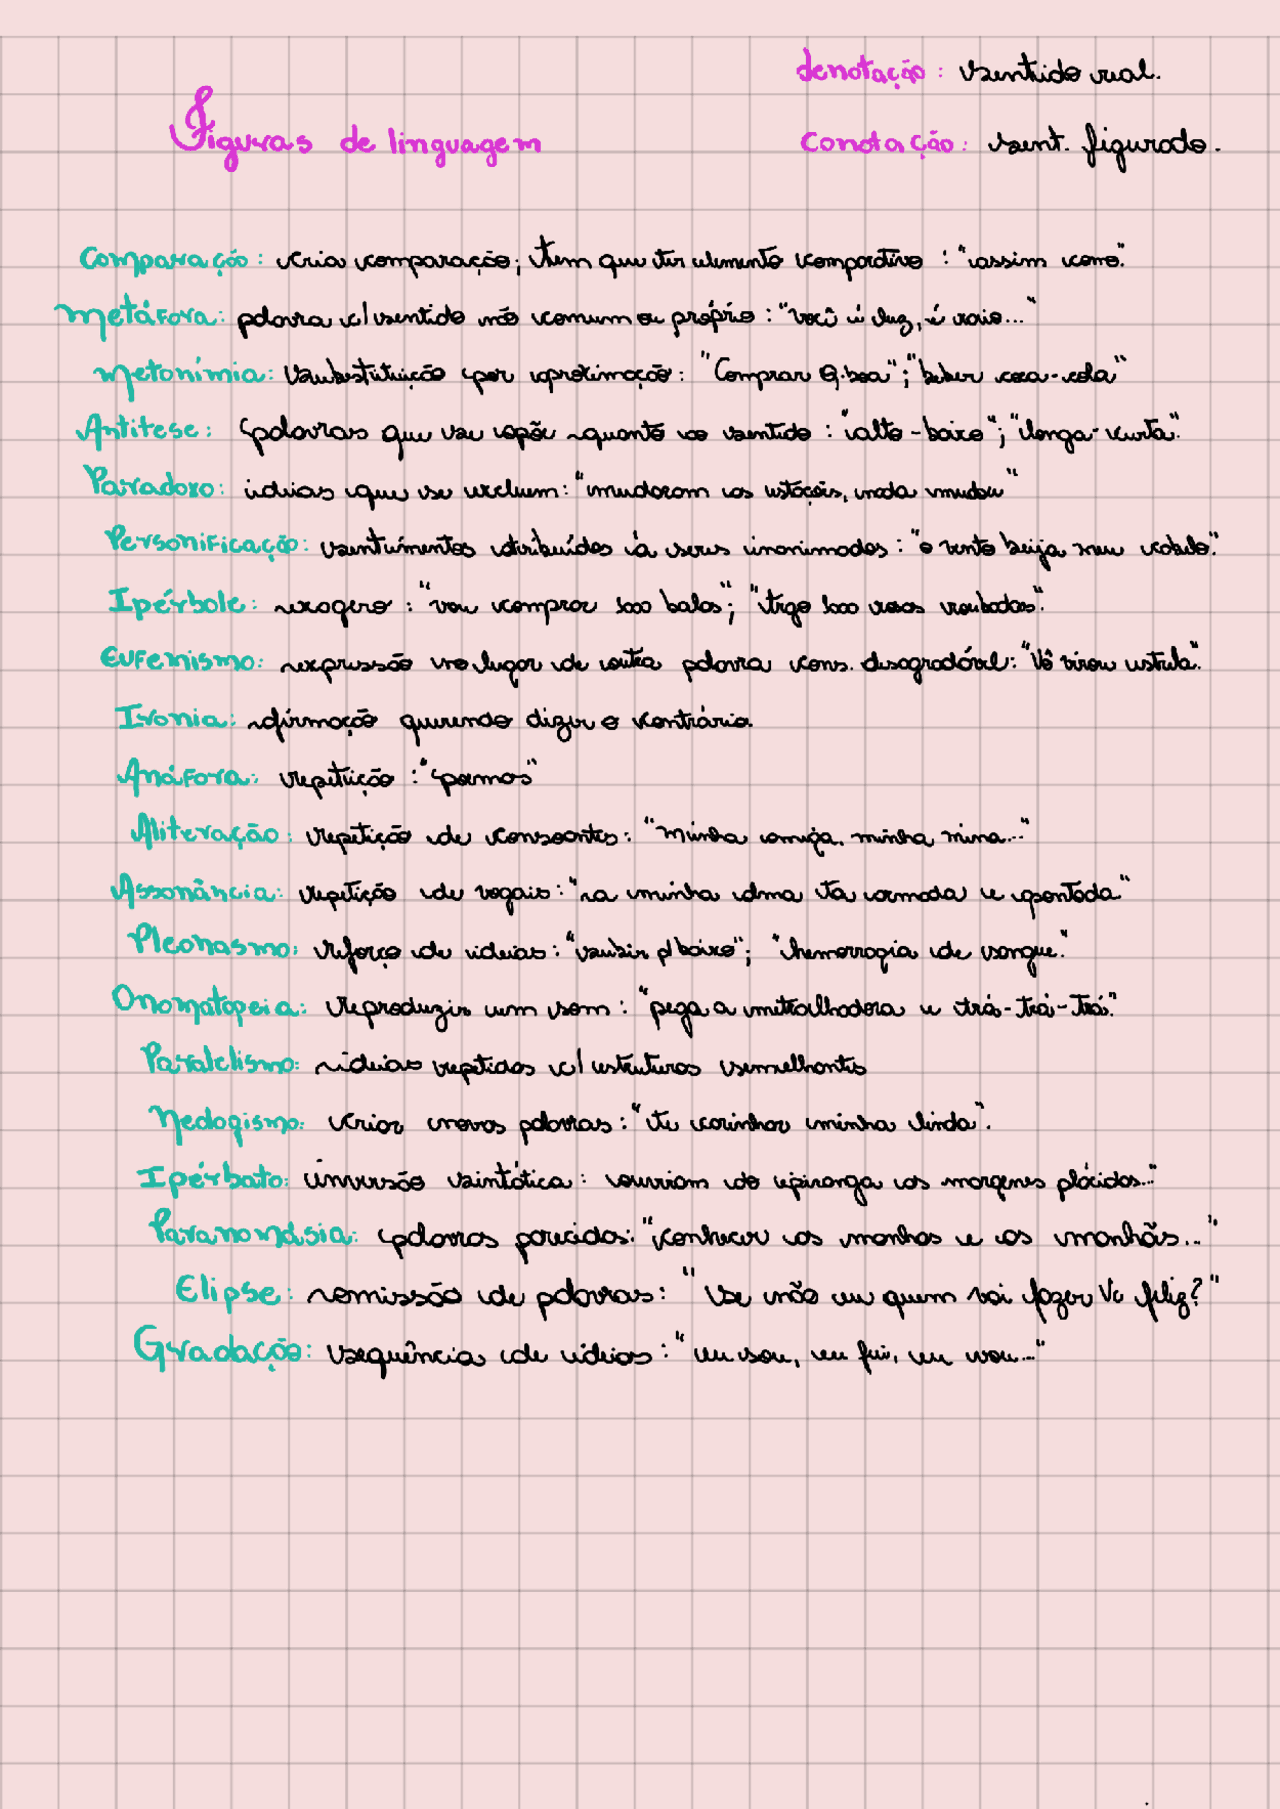 denotação: sentido real.
Figuras de linguagem
Conotação: sent. figurado.
Comparação: cria comparação; tem que ter elemento comparativo: "assim como".
Metáfora: palavra c/ sentido não comum ou próprio: "você é luz, é raio..."
Metonímia: substituição por aproximação: "Comprar Q-boa"; "beber coca-cola"
Antítese: palavras que se opõe quanto ao sentido: "alto-baixo"; "longa-curta".
Paradoxo: ideias que se excluem: "mudaram as estações, nada mudou"
Personificação: sentimentos atribuídos à seres inanimados: "o vento beija meu cabelo".
Ipérbole: exagero: "vou comprar 1000 balas"; "trago 1000 rosas roubadas".
Eufemismo: expressão no lugar de outra palavra cons. desagradável: "Vô virou estrela".
Ironia: afirmação querendo dizer o contrário.
Anáfora: repetição: "
Aliteração: repetição de consoantes: "Minha amiga. minha mina..."
Assonância: repetição de vogais: "a minha alma tá armada e apontada"
Pleonasmo: reforço de ideias: "subir p/ baixo"; "hemorragia de sangue."
Onomatopeia: Reproduzir um som: "pega a metralhadora e trá-trá-trá".
Paralelismo: ideias repetidas c/ estruturas semelhantes
Neologismo: criar novas palavras: "te carinhar minha linda".
Ipérbato: inversão sintática: ouviram do ipiranga as margenes plácidas..."
Paranomásia: palavras parecidas: "conhecer as manhas e as manhãs..."
Elipse: omissão de palavras: "Se não eu quem vai fazer Vc feliz?"
Gradação: sequência de ideias: "eu sou, eu fui, eu vou..."